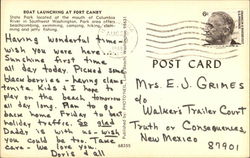 BOAT LAUNCHING AT FORT CANBY
State Park located at the mouth of Columbia
River in Southwest Washington. Park area offers
beachcombing, swimming, camping, hiking, clam-
ming and jetty fishing.
Having wonderful time-
wish you were here....
Sunshing first time
all day today. Picked some
blackberries - having clams
tonite. Kids & I hope to
play on the beach tomorrow
all day long. Plan to go
back home Friday to beat
holiday traffic. So glad
Daddy is with us - wish
you could be too. Take
care - we love you.
Doris & all
6¢
POST CARD
Mrs. E. J. GRIMES
c/o
Walker's Trailer Court
Truth or Consequences,
New Mexico
87901
68355